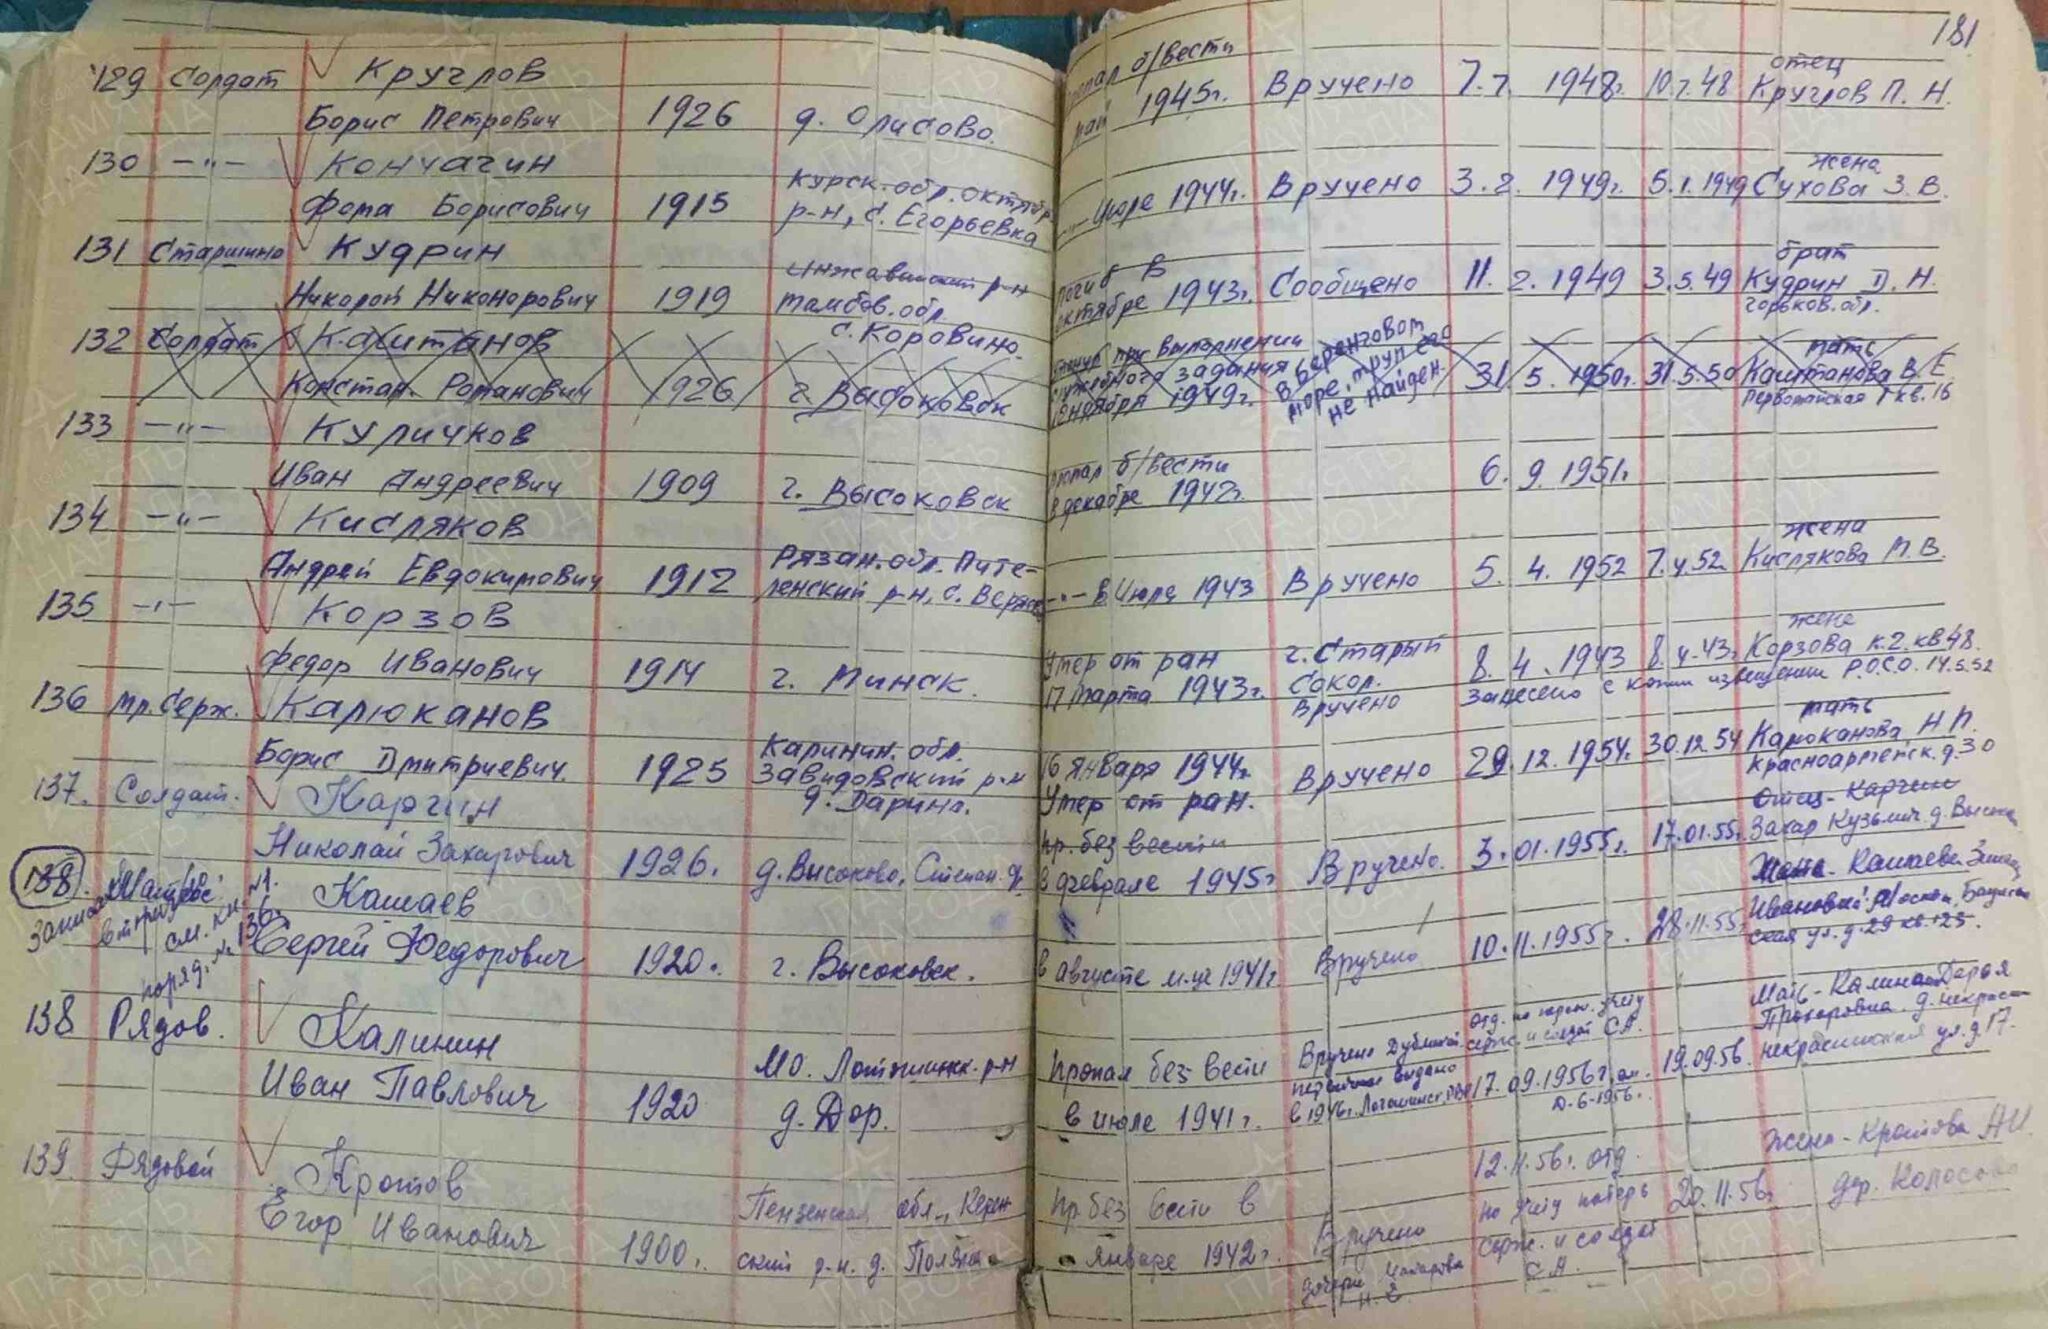 181
129 Солдат Круглов
Борис Петрович 1926 д. Олисово.
пропал б/вести
май 1945г. Вручено 7.7. 1948г. 10.7.48 отец
Круглов П. Н.
130 —"— Кончагин
Фома Борисович 1915 Курск. обл. октябр.
р-н, с. Егорьевка
—"— Июле 1944г. Вручено 3.2. 1949г. 5.1.1949 жена
Сухова З. В.
131 Старшина Кудрин
Николай Никонорович 1919 Инжавинский р-н
тамбов. обл.
с. Коровино.
погиб в
октябре 1943г. Сообщено 11.2.1949 3.5.49 брат
Кудрин Д. Н.
горьков. обл.
132 Солдат Каштанов
Констан. Романович 1926 г. Высоковск
при выполнении
служебного задания
ноября 1949г. в беринговом
море, труп его
не найден. 31.5.1950г. 31.5.50 мать
Каштанова В. Е.
Первомайская 1 кв. 16
133 —"— Куличков
Иван Андреевич 1909 г. Высоковск
пропал б/вести
в декабре 1942г. 6.9.1951г.
134 —"— Кисляков
Андрей Евдокимович 1912 Рязан. обл. Пите-
ленский р-н, с.
—"— в Июле 1943 Вручено 5.4.1952 7.4.52 жена
Кислякова М. В.
135 —"— Корзов
Федор Иванович 1914 г. Минск.
Умер от ран
17 марта 1943г. г. Старый
Оскол.
Вручено 8.4.1943 8.4.43г. жена
Корзова к. 2. кв 48.
занесено с копии извещения Р.О.С.О. 14.5.52
136 мл. серж. Калюканов
Борис Дмитриевич 1925 Калинин. обл.
Завидовский р-н
д. Дарино.
16 января 1944г.
Умер от ран. Вручено 29.12.1954г. 30.12.54 мать
Калюканова Н. П.
Красноармейск. д. 30
137. Солдат. Каргин
Николай Захарович 1926. д. Высоково, Степан.
пр. без вести
в феврале 1945г Вручено. 3.01.1955г. 17.01.55г. Отец - Каргин
Захар Кузьмич д.
138. Матрос
см. кн. №1.
поряд. № 136.
Кашаев
Сергей Федорович 1920. г. Высоковск.
в августе м-це 1941г Вручено 10.11.1955г. 28.11.55г. Жена - Кашаева
ул. д. 29 кв. 25.
138 Рядов. Калинин
Иван Павлович 1920 МО. Лотошинск. р-н
д. Дор.
Пропал без вести
в июле 1941г. Вручено Дубликат
первичное выдано
в 1946г. Лотошинск. РВК
отд. по персон. учету
серж. и солдат СА.
17.09.1956г.
19.09.56. Мать - Калинина Дарья
Прохоровна. д. некрасино
некрасинская ул. д 17.
139. Рядовой Кротов
Егор Иванович 1900г. Пензенская обл., Керен-
ский р-н. д. Поляна
пр. без вести в
январе 1942г. Вручено
дочери Макарова
Н. Е.
12.11.56г. отд.
по учету потерь
серж. и солдат
СА. 20.11.56г. жена - Кротова АИ.
дер. Колосово
ПАМЯТЬ
НАРОДА